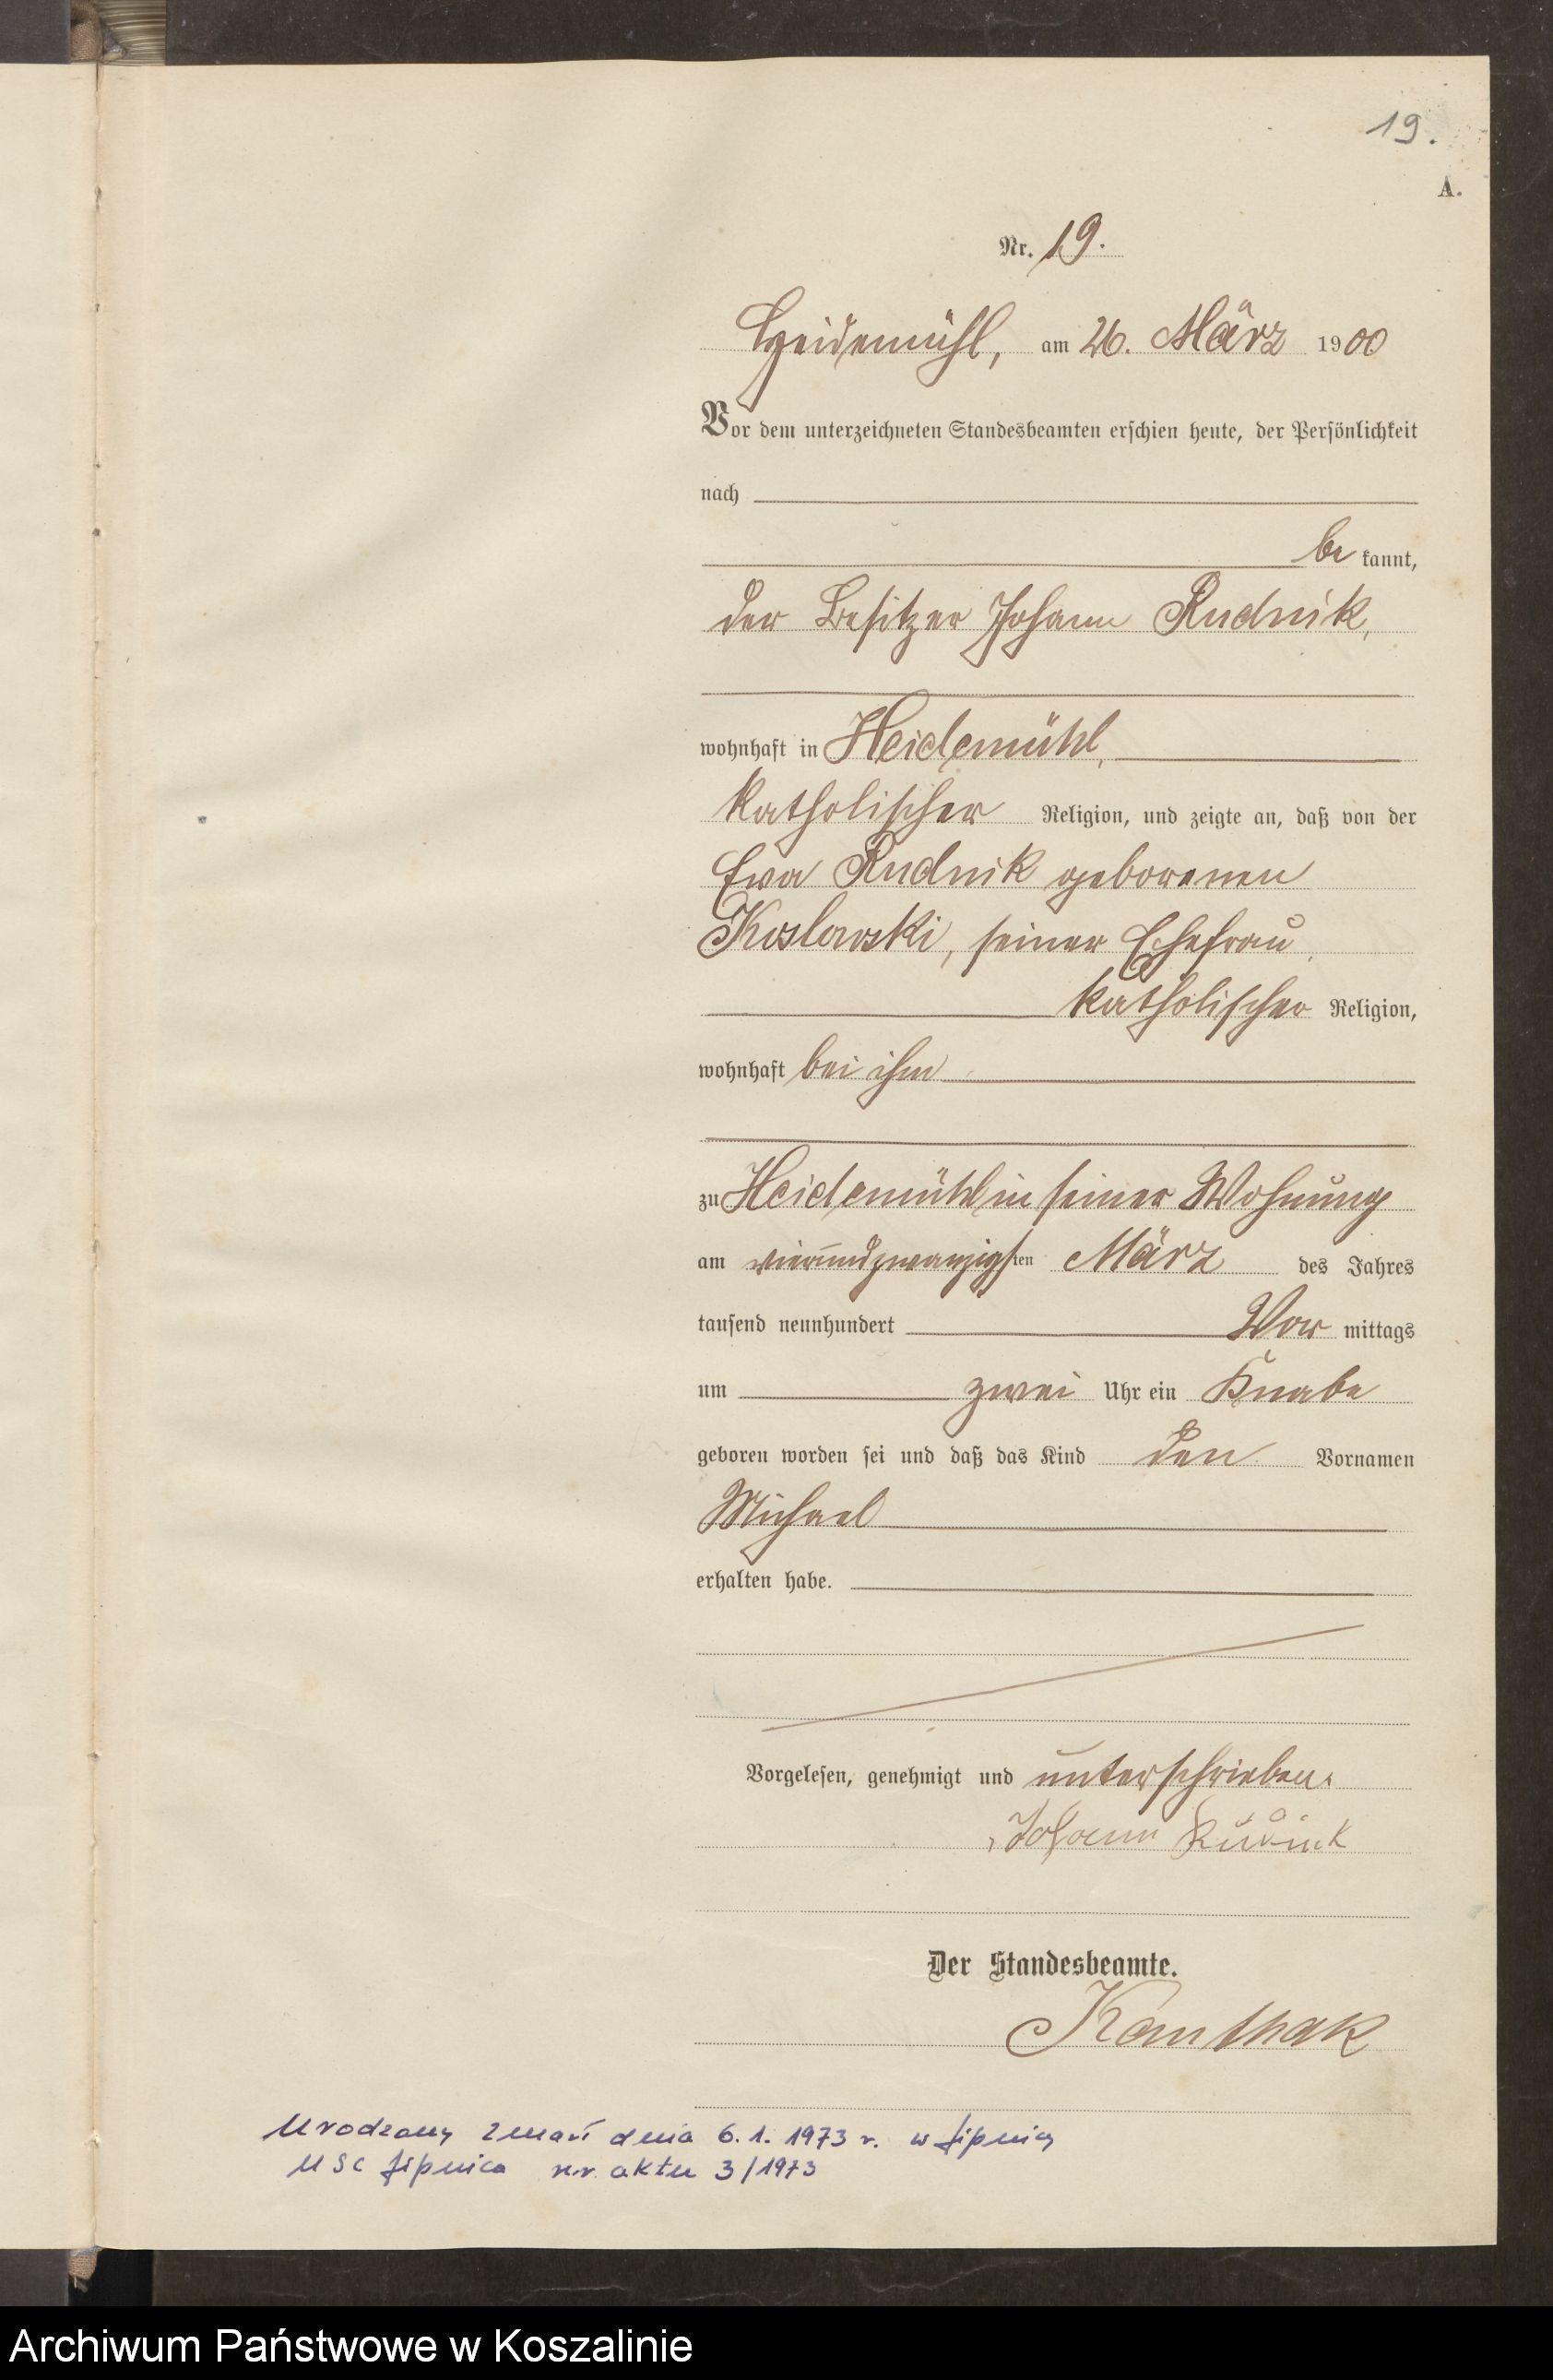 19.
A.
Nr. 19.
Heidemühl, am 26. März 1900
Vor dem unterzeichneten Standesbeamten erschien heute, der Persönlichkeit
nach
be kannt,
der Besitzer Johann Rudnik,
wohnhaft in Heidemühl,
katholischer Religion, und zeigte an, daß von der
Ewa Rudnik geborenen
Koslowski, seiner Ehefrau,
katholischer Religion,
wohnhaft bei ihm
zu Heidemühl in seiner Wohnung
am vierundzwanzigsten März des Jahres
tausend neunhundert Vor mittags
um zwei Uhr ein Knabe
geboren worden sei und daß das Kind den Vornamen
Michael
erhalten habe.
Vorgelesen, genehmigt und unterschrieben.
Johann
Der Standesbeamte.
Kanthak
Urodzony zmarł dnia 6.1.1973 r. w Lipnicy
USC Lipnica nr. aktu 3/1973
Archiwum Państwowe w Koszalinie